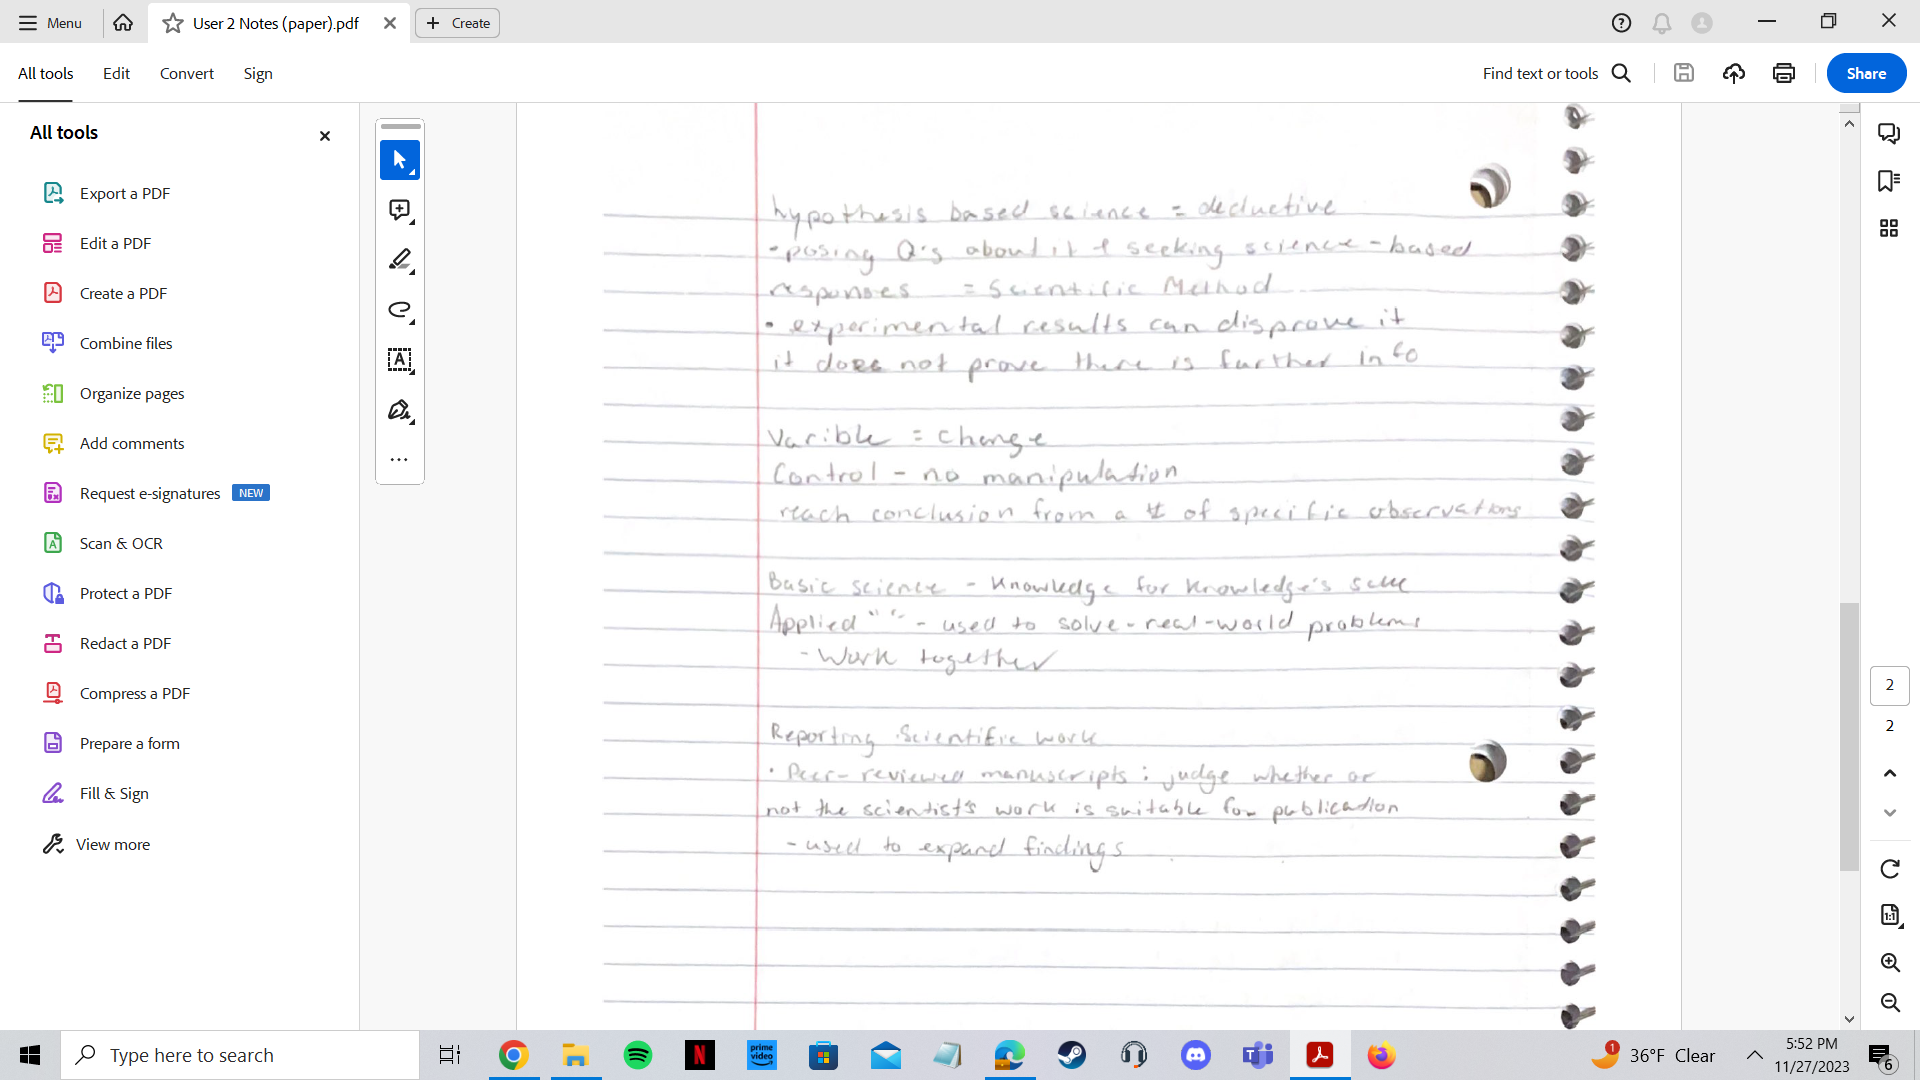 Menu
User 2 Notes (paper).pdf
Create
All tools
Edit
Convert
Sign
Find text or tools
Share
All tools
Export a PDF
Edit a PDF
Create a PDF
Combine files
Organize pages
Add comments
Request e-signatures NEW
Scan & OCR
Protect a PDF
Redact a PDF
Compress a PDF
Prepare a form
Fill & Sign
View more
hypothesis based science = deductive
• posing Q's about it + seeking science-based
responses = Scientific Method
• experimental results can disprove it
it does not prove there is further info
Varible = Change
Control - no manipulation
reach conclusion from a # of specific observations
Basic science - Knowledge for knowledge's sake
Applied " " - used to solve-real-world problems
- Work together
Reporting Scientific work
• Peer-reviewed manuscripts: judge whether or
not the scientist's work is suitable for publication
- used to expand findings
2
2
1:1
Type here to search
prime video
1
36°F Clear
5:52 PM
11/27/2023
6